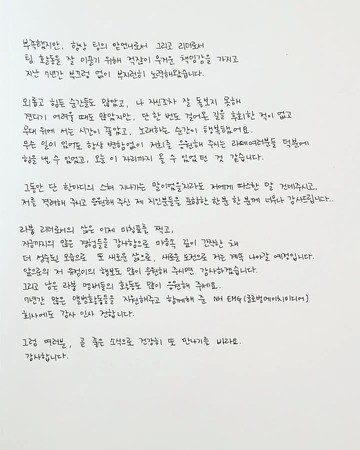 부족했지만, 항상 팀의 맏언니로서 그리고 리더로서
팀 활동을 잘 이끌기 위해 적잖이 무거운 책임감을 가지고
지난 7년간 부끄럼 없이 부지런히 노력해왔습니다.
외롭고 힘든 순간들도 많았고, 나 자신조차 잘 돌보지 못해
견디기 어려울 때도 많았지만, 단 한 번도 걸어온 길을 후회한 적이 없고
무대 위에 서는 시간이 좋았고, 노래하는 순간이 행복했어요.
무슨 일이 있어도 항상 변함없이 저희를 응원해 주시는 라떼여러분들 덕분에
힘을 낼 수 있었고, 오늘 이 자리까지 올 수 있었던 것 같습니다.
그동안 단 한마디의 스쳐 지나가는 말이었을지라도 저에게 따스한 말 건네주시고,
저를 격려해 주시고 응원해 주신 제 지인분들을 포함한 한분 한 분께 너무나 감사드립니다..
라붐 리더로서의 삶은 이제 마침표를 찍고,
지금까지의 많은 경험들을 감사함으로 마음속 깊이 간직한 채
더 성숙된 모습으로 또 새로운 삶으로, 새로운 도전으로 저는 계속 나아갈 예정입니다.
앞으로의 저 유정이의 행보도 많이 응원해 주시면 감사하겠습니다.
그리고 남은 라붐 멤버들의 활동도 많이 응원해 주세요.
7년간 많은 앨범활동들을 지원해주고 함께해 준 NH EMG (글로벌에이치미디어)
회사에도 감사 인사 전합니다.
그럼 여러분, 곧 좋은 소식으로 건강히 또 만나기를 바라요.
감사합니다.